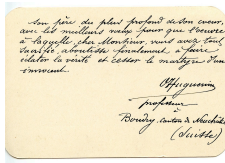 son père du plus profond de son coeur,
avec les meilleurs voeux pour que l'oeuvre
à laquelle, cher Monsieur, vous avez tout
sacrifié, aboutisse finalement, à faire
éclater la vérité et cesser le martyre d'un
innocent.
Huguenin
professeur
à Boudry, canton de Neuchâtel
(Suisse)